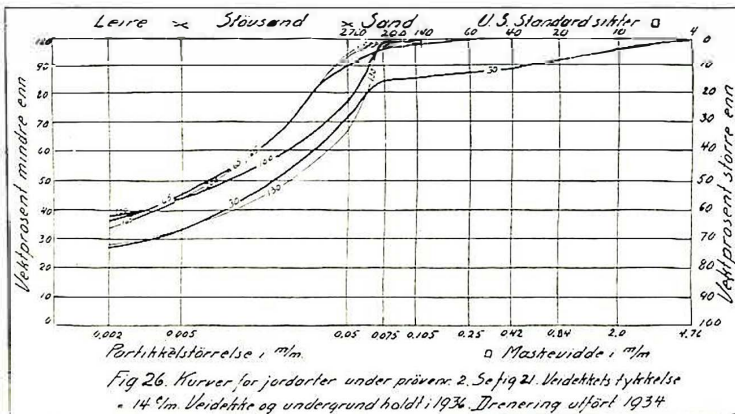 Leire × Stövsand × Sand U.S. Standard sikter □
270 200 140 60 40 20 10 4
Vektprosent mindre enn
90
80
70
60
50
40
30
20
10
0
0
10
20
30
40
50
60
70
80
90
100
Vektprosent större enn
30
100
65
30
150
0,002 0,005 0,05 0,075 0,105 0,25 0,42 0,84 2,0 4,76
Partikkelstörrelse i m/m □ Maskevidde i m/m
Fig 26. Kurver for jordarter under prövenr. 2. Se fig 21. Veidekkets tykkelse
= 14 c/m. Veidekke og undergrund holdt i 1936. Drenering utfört 1934